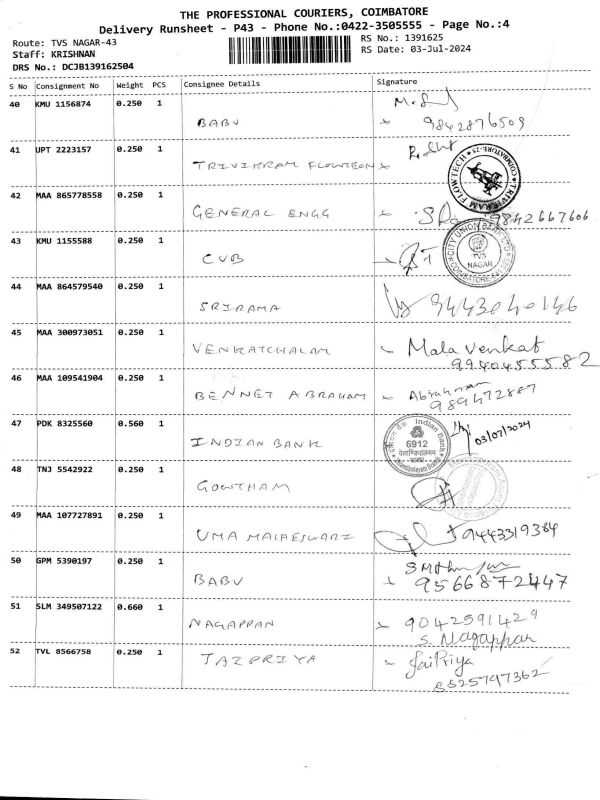 THE PROFESSIONAL COURIERS, COIMBATORE
Delivery Runsheet - P43 - Phone No.:0422-3505555 - Page No.:4
Route: TVS NAGAR-43
RS No.: 1391625
Staff: KRISHNAN
RS Date: 03-Jul-2024
DRS No.: DCJB139162504
S No Consignment No Weight PCS Consignee Details Signature
40 KMU 1156874 0.250 1
BABU 9842876509
41 UPT 2223157 0.250 1
TRIVIKRAM FLOWTECH
TRIVIKRAM FLOWTECH COIMBATORE
42 MAA 865778558 0.250 1
GENERAL ENGG 9842667606
43 KMU 1155588 0.250 1
CUB
CITY UNION BANK LTD
TVS
NAGAR
44 MAA 864579540 0.250 1
SRIRAMA 9443040146
45 MAA 300973051 0.250 1
VENKATCHALAM Mala Venkat
9940455582
46 MAA 109541904 0.250 1
BENNET ABRAHAM
989472887
47 PDK 8325560 0.560 1
INDIAN BANK 03/07/2024
Indian Bank
6912
48 TNJ 5542922 0.250 1
GOWTHAM
49 MAA 107727891 0.250 1
UMA MAHESWARI 9443319384
50 GPM 5390197 0.250 1
BABU 9566872447
51 SLM 349507122 0.660 1
NAGAPPAN 9042591429
S. Nagappan
52 TVL 8566758 0.250 1
JAIPRIYA JaiPriya
8525797362